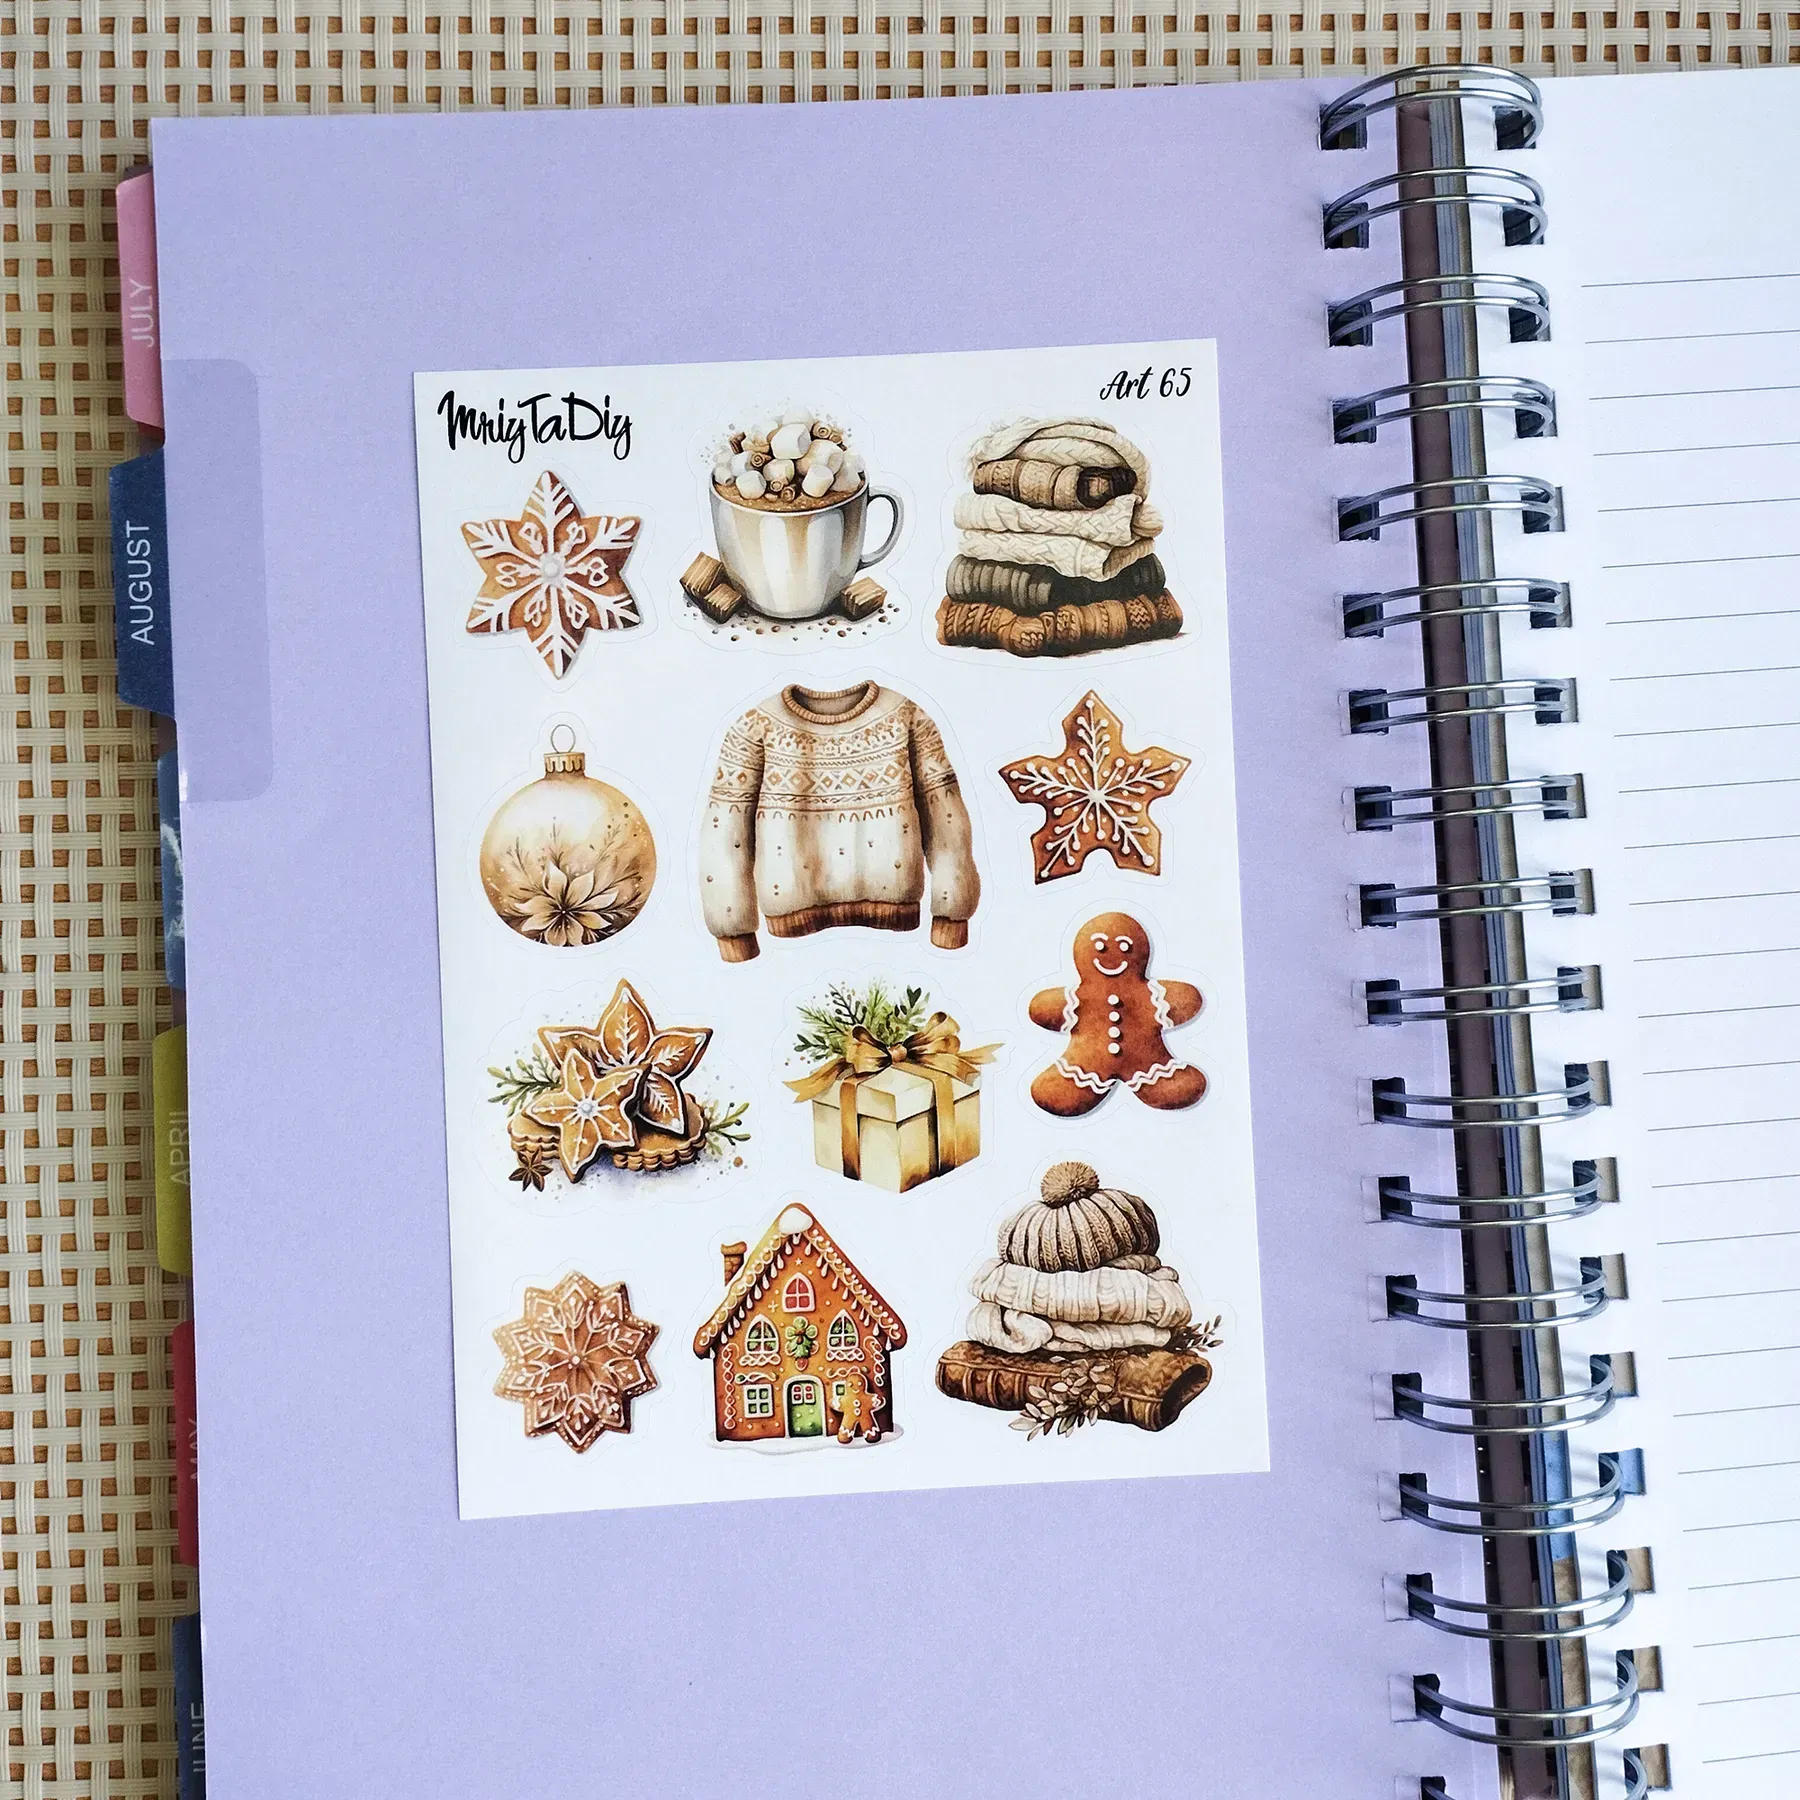 MriyTaDiy
Art 65
JULY
AUGUST
APRIL
MAY
JUNE